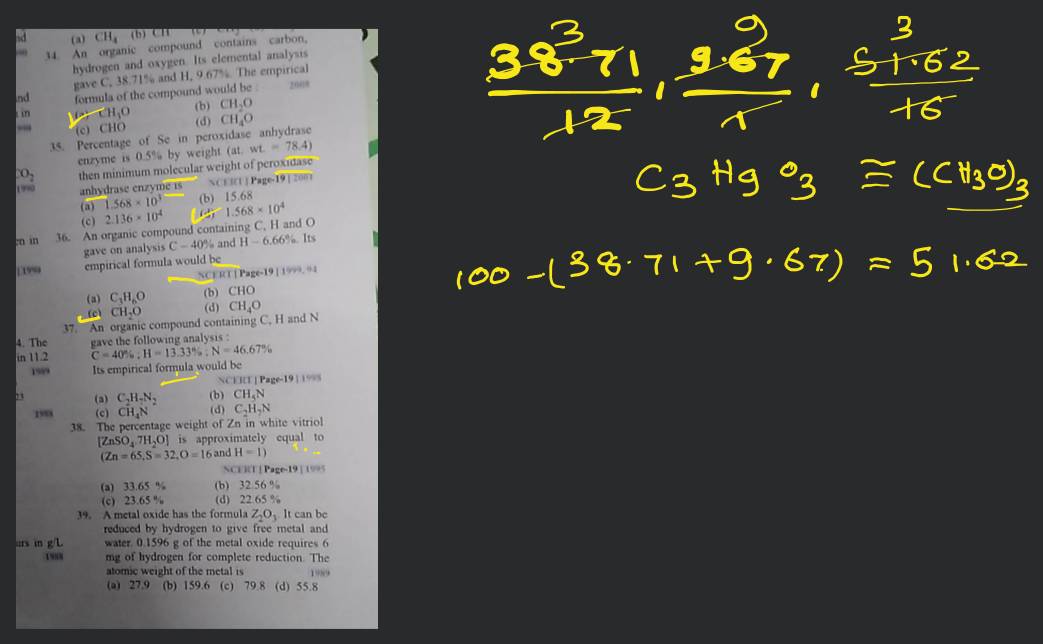 (a) CH₄ (b) CH
34. An organic compound contains carbon,
hydrogen and oxygen. Its elemental analysis
gave C, 38.71% and H, 9.67%. The empirical
formula of the compound would be : 2008
CH₃O (b) CH₂O
(c) CHO (d) CH₄O
35. Percentage of Se in peroxidase anhydrase
enzyme is 0.5% by weight (at. wt. = 78.4)
then minimum molecular weight of peroxidase
anhydrase enzyme is NCERT | Page-19 | 2001
(a) 1.568 × 10³ (b) 15.68
(c) 2.136 × 10⁴ (d) 1.568 × 10⁴
36. An organic compound containing C, H and O
gave on analysis C – 40% and H – 6.66%. Its
empirical formula would be
NCERT | Page-19 | 1999, 94
(a) C₃H₆O (b) CHO
(c) CH₂O (d) CH₄O
37. An organic compound containing C, H and N
gave the following analysis :
C = 40% ; H = 13.33% ; N = 46.67%
Its empirical formula would be
NCERT | Page-19 | 1998
(a) C₂H₇N₂ (b) CH₅N
(c) CH₄N (d) C₂H₇N
38. The percentage weight of Zn in white vitriol
[ZnSO₄.7H₂O] is approximately equal to
(Zn = 65, S = 32, O = 16 and H = 1)
NCERT | Page-19 | 1995
(a) 33.65 % (b) 32.56 %
(c) 23.65 % (d) 22.65 %
39. A metal oxide has the formula Z₂O₃. It can be
reduced by hydrogen to give free metal and
water. 0.1596 g of the metal oxide requires 6
mg of hydrogen for complete reduction. The
atomic weight of the metal is 1989
(a) 27.9 (b) 159.6 (c) 79.8 (d) 55.8
nd
in
CO₂
1990
en in
1990
4. The
in 11.2
1989
23
1988
urs in g/L
1988
3 9 3
38.71 , 9.67 , 51.62
12 1 16
C₃ H₉ O₃ ≅ (CH₃O)₃
100 - (38.71 + 9.67) = 51.62